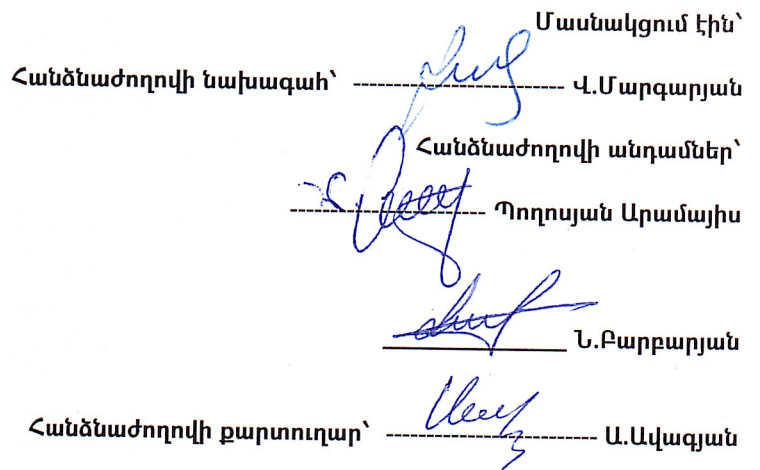 Մասնակցում էին՝
Հանձնաժողովի նախագահ՝ ------------------------ Վ.Մարգարյան
Հանձնաժողովի անդամներ՝
---------------------- Պողոսյան Արամայիս
________________ Ն.Բարբարյան
Հանձնաժողովի քարտուղար՝ ------------------------ Ա.Ավագյան